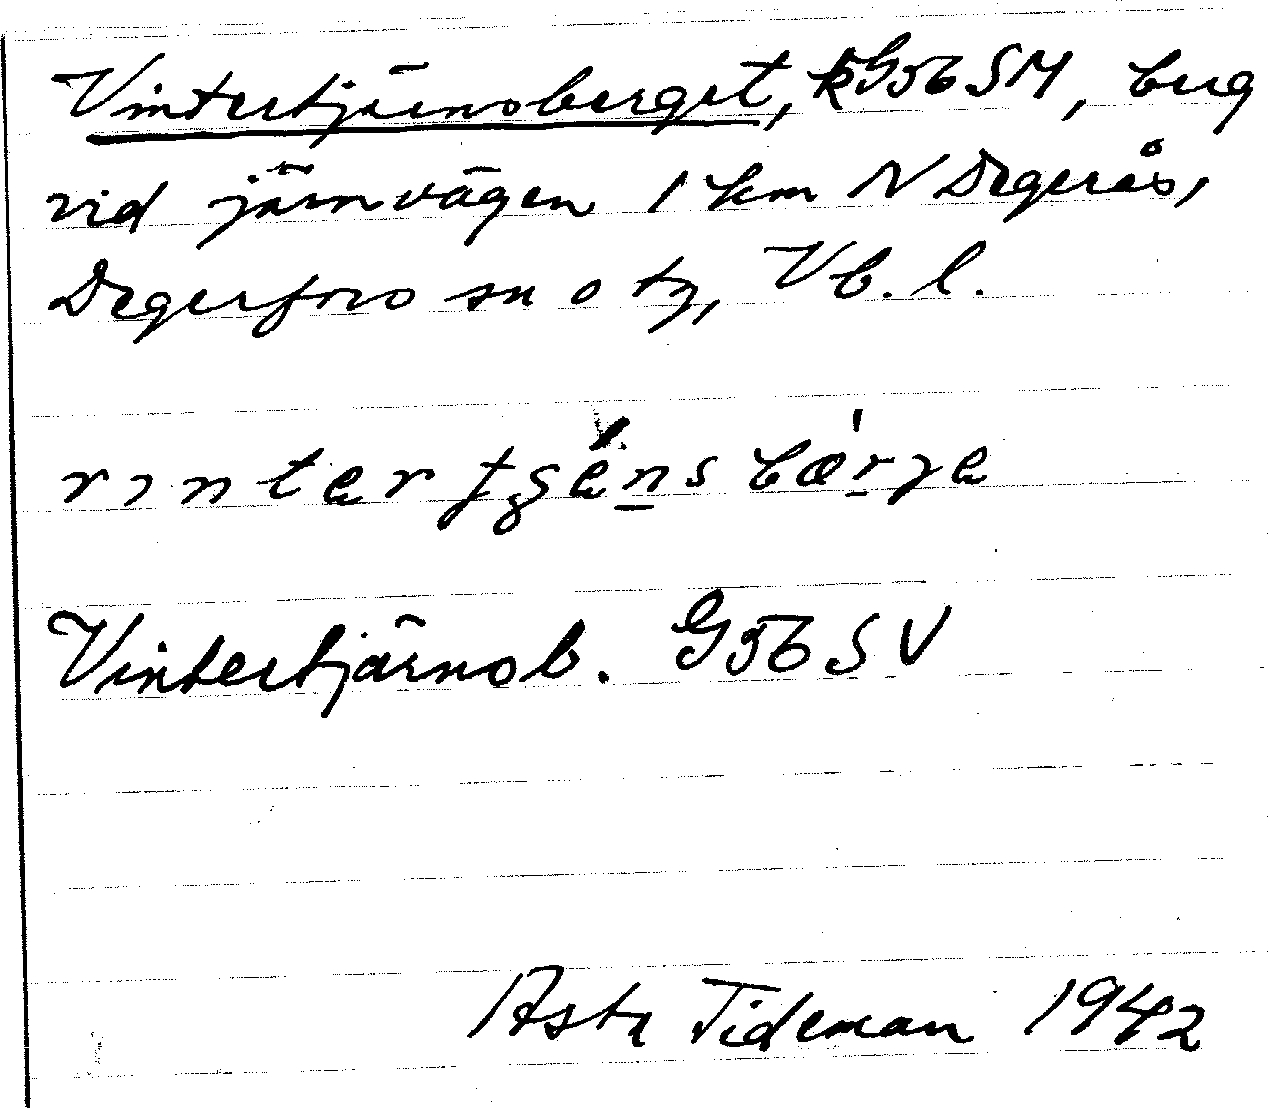 Vintertjärnsberget, G56 SM, berg
vid järnvägen 1 km N Degerås,
Degerfors sn o tg, Vb. l.
Vintertjärnsb. G56 SV
Asta Tideman 1942